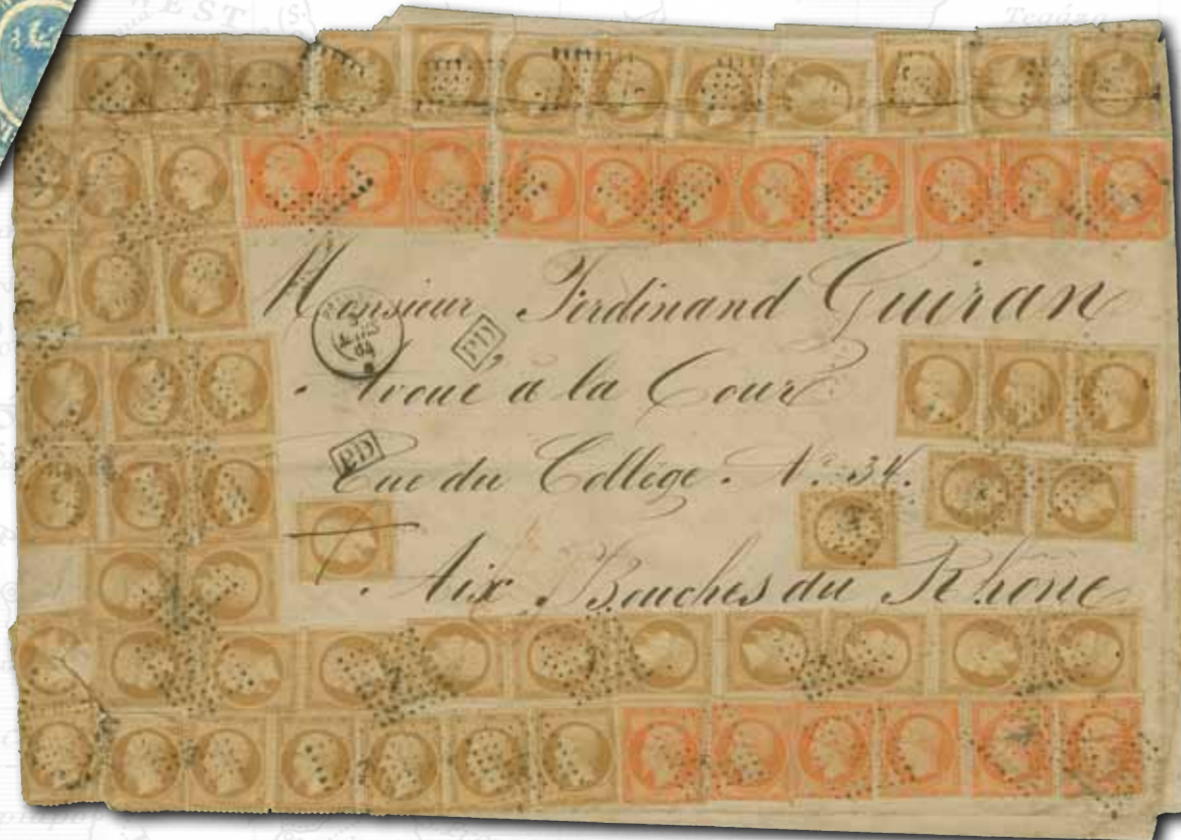 TEST
Monsieur Ferdinand Guiran
64
PD
Avoué à la Cour
PD
Rue du Collège. N.° 34.
Aix. Bouches du Rhône